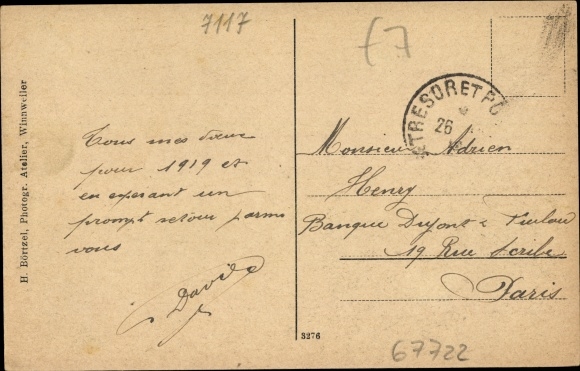 7117
f7
H. Börtzel, Photogr. Atelier, Winnweiler
TRESOR ET PO
26
Tous mes vœux
pour 1919 et
en esperant un
prompt retour parmi
vous
David
Monsieur Adrien
Henry
Banque Dupont &
19 Rue Scribe
Paris
3276
67722